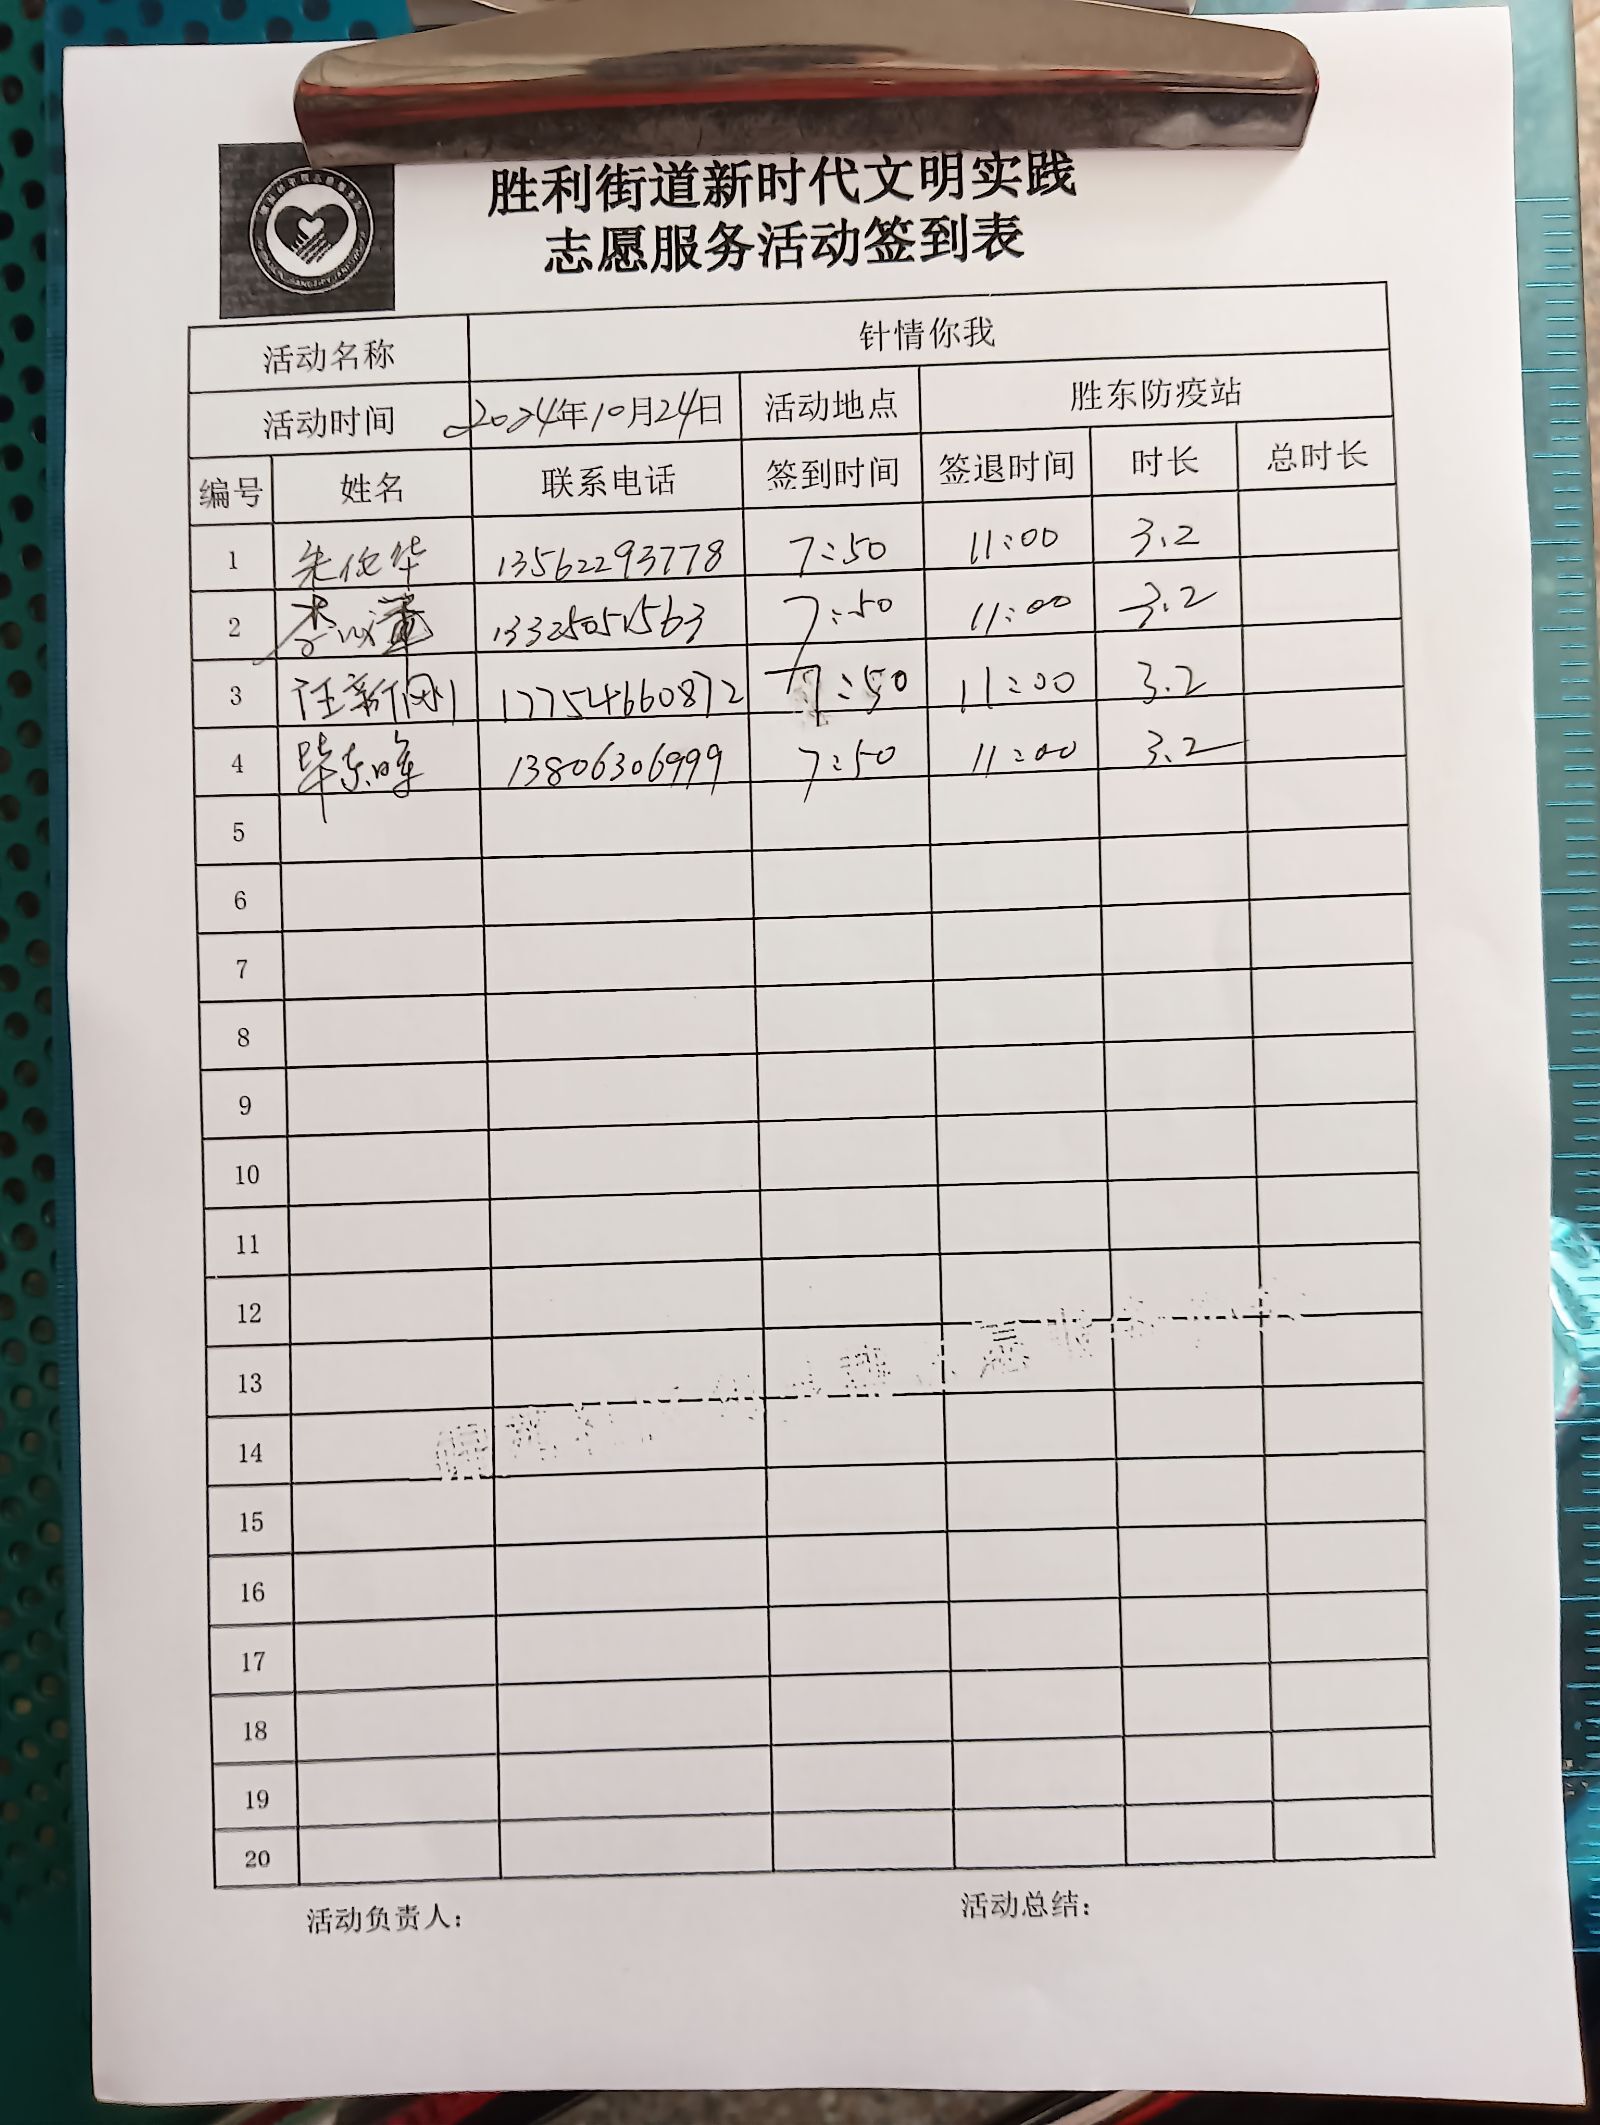 胜利街道新时代文明实践
志愿服务活动签到表
活动名称 针情你我
活动时间 2024年10月24日 活动地点 胜东防疫站
编号 姓名 联系电话 签到时间 签退时间 时长 总时长
1 华 13562293778 7:50 11:00 3.2
2 李 13325051563 7:50 11:00 3.2
3 任新刚 17754660872 7:50 11:00 3.2
4 毕东晖 13806306999 7:50 11:00 3.2
5
6
7
8
9
10
11
12
13
14
15
16
17
18
19
20
活动负责人: 活动总结: